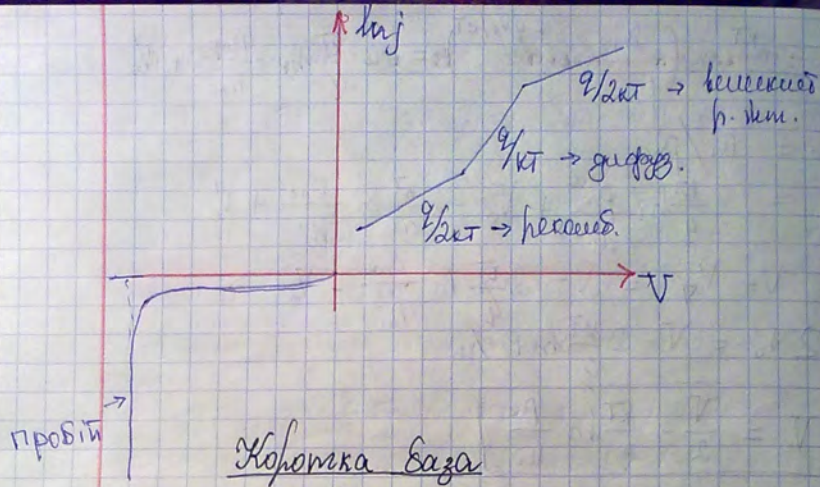 ln j
q/2кТ → великий
р. інж.
q/кТ → дифуз.
q/2кТ → рекомб.
V
пробій →
Коротка база